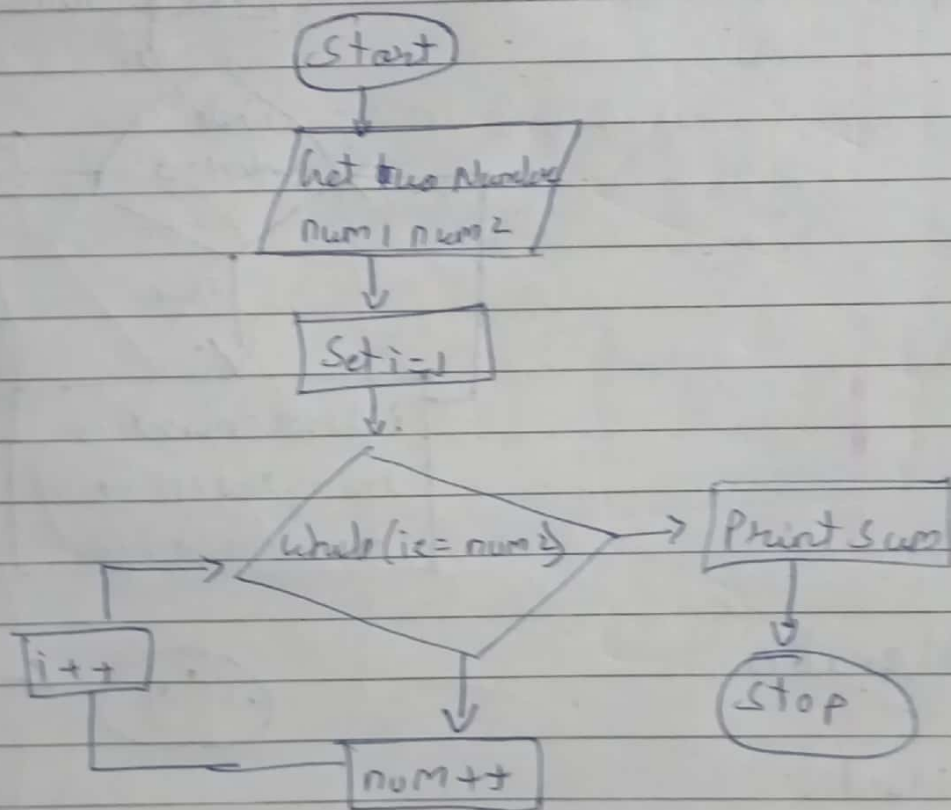 Start
Get two Number
num1 num2
Set i=1
while(i<= num2)
Print Sum
i++
Stop
num++